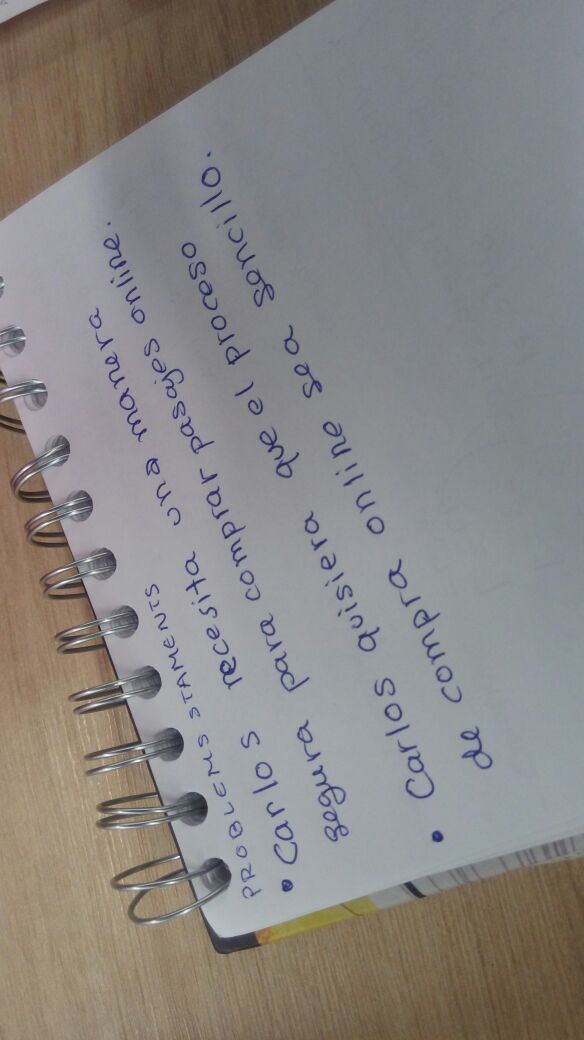 PROBLEMS STAMENTS
• Carlos necesita una manera
segura para comprar pasajes online.
• Carlos quisiera que el proceso
de compra online sea sencillo.